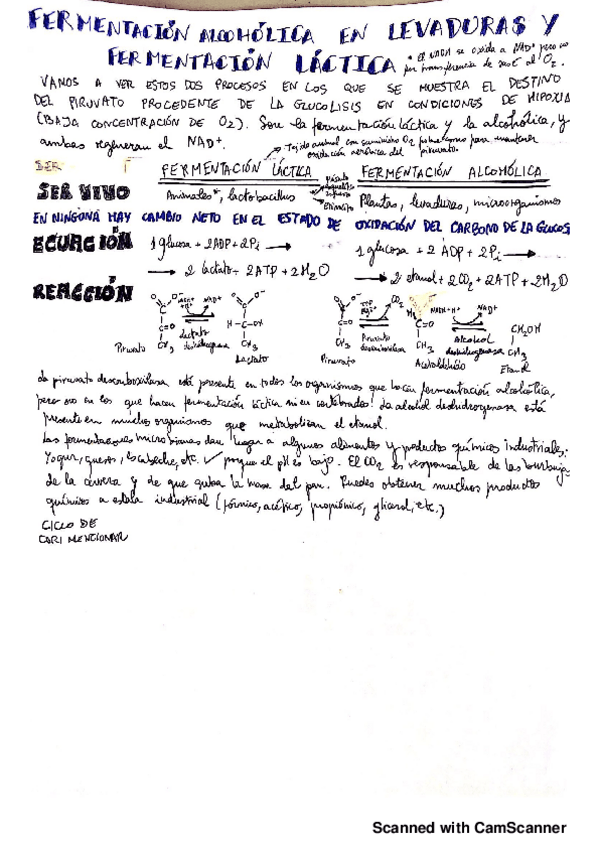 FERMENTACIÓN ALCOHÓLICA EN LEVADURAS Y
FERMENTACIÓN LÁCTICA
* el NADH se oxida a NAD+ pero no
por transferencia de sus e- al O2.
VAMOS A VER ESTOS DOS PROCESOS EN LOS QUE SE MUESTRA EL DESTINO
DEL PIRUVATO PROCEDENTE DE LA GLUCOLISIS EN CONDICIONES DE HIPOXIA
(BAJA CONCENTRACIÓN DE O2). Son la fermentación láctica y la alcohólica, y
ambas regeneran el NAD+.
Tejido animal con suministro O2 para mantener
oxidación aeróbica del piruvato.
SER
FERMENTACIÓN LÁCTICA FERMENTACIÓN ALCOHÓLICA
SER VIVO
Animales*, lactobacillus
Eritrocitos
Plantas, levaduras, microorganismos
EN NINGUNA HAY CAMBIO NETO EN EL ESTADO DE OXIDACIÓN DEL CARBONO DE LA GLUCOS
ECUACIÓN
1 glucosa + 2ADP + 2Pi →
→ 2 lactato + 2ATP + 2H2O
1 glucosa + 2 ADP + 2Pi →
→ 2 etanol + 2CO2 + 2ATP + 2H2O
REACCIÓN
Piruvato
C=O
CH3
NADH
+H+
NAD+
lactato
deshidrogenasa
H-C-OH
CH3
Lactato
Piruvato
C=O
CH3
CO2
Piruvato
descarboxilasa
H
C=O
CH3
Acetaldehído
NADH+H+
NAD+
Alcohol
deshidrogenasa
CH2OH
CH3
Etanol
La piruvato descarboxilasa está presente en todos los organismos que hacen fermentación alcohólica,
pero no en los que hacen fermentación láctica ni en vertebrados! La alcohol deshidrogenasa está
presente en muchos organismos que metabolizan el etanol.
Las fermentaciones microbianas dan lugar a algunos alimentos y productos químicos industriales;
Yogur, quesos, escabeche, etc. ✓ porque el pH es bajo. El CO2 es responsable de las burbuja
de la cerveza y de que suba la masa del pan. Puedes obtener muchos productos
químicos a escala industrial (fórmico, acético, propiónico, glicerol, etc.)
CICLO DE
CORI MENCIONAR
Scanned with CamScanner